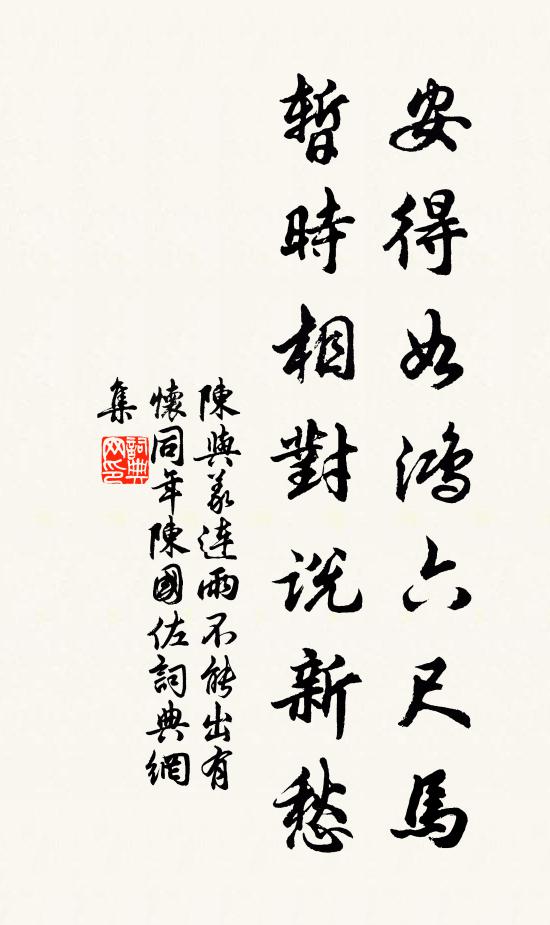 安得如鴻六尺馬
暫時相對說新愁
陳與義連雨不能出有
懷同年陳國佐詞典網
集
詞典
网印